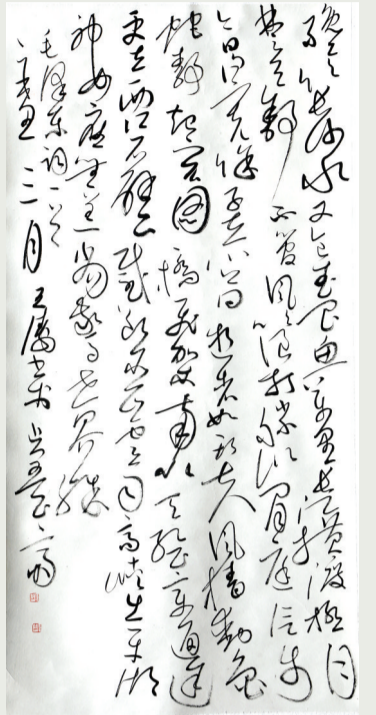 才饮长沙水又食武昌鱼万里长江横渡极目
楚天舒不管风吹浪打胜似闲庭信步
今日得宽馀子在川上曰逝者如斯夫风樯动龟
蛇静起宏图一桥飞架南北天堑变通途
更立西江石壁截断巫山云雨高峡出平湖
神女应无恙当惊世界殊
毛泽东词一首
三月王